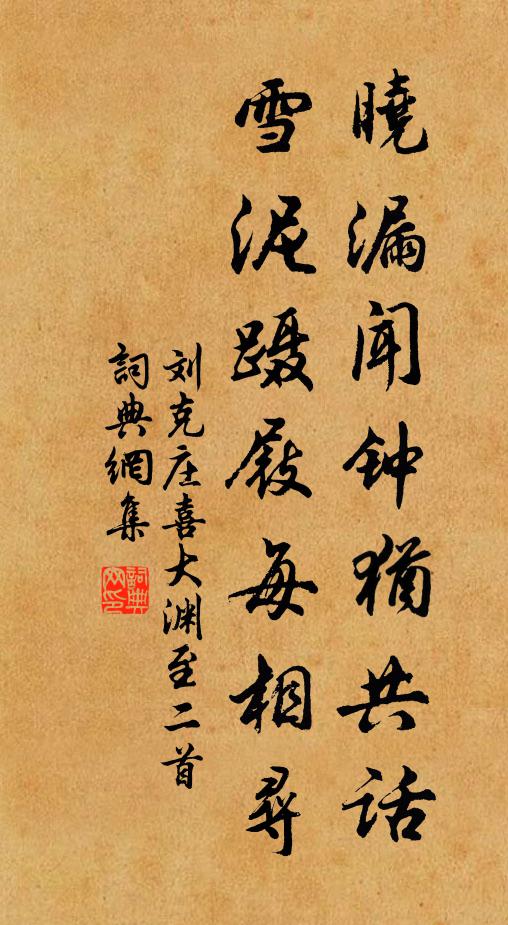 曉漏闻钟猶共话
雪泥蹑屐每相尋
刘克庄喜大渊至二首
詞典網集
詞典网印